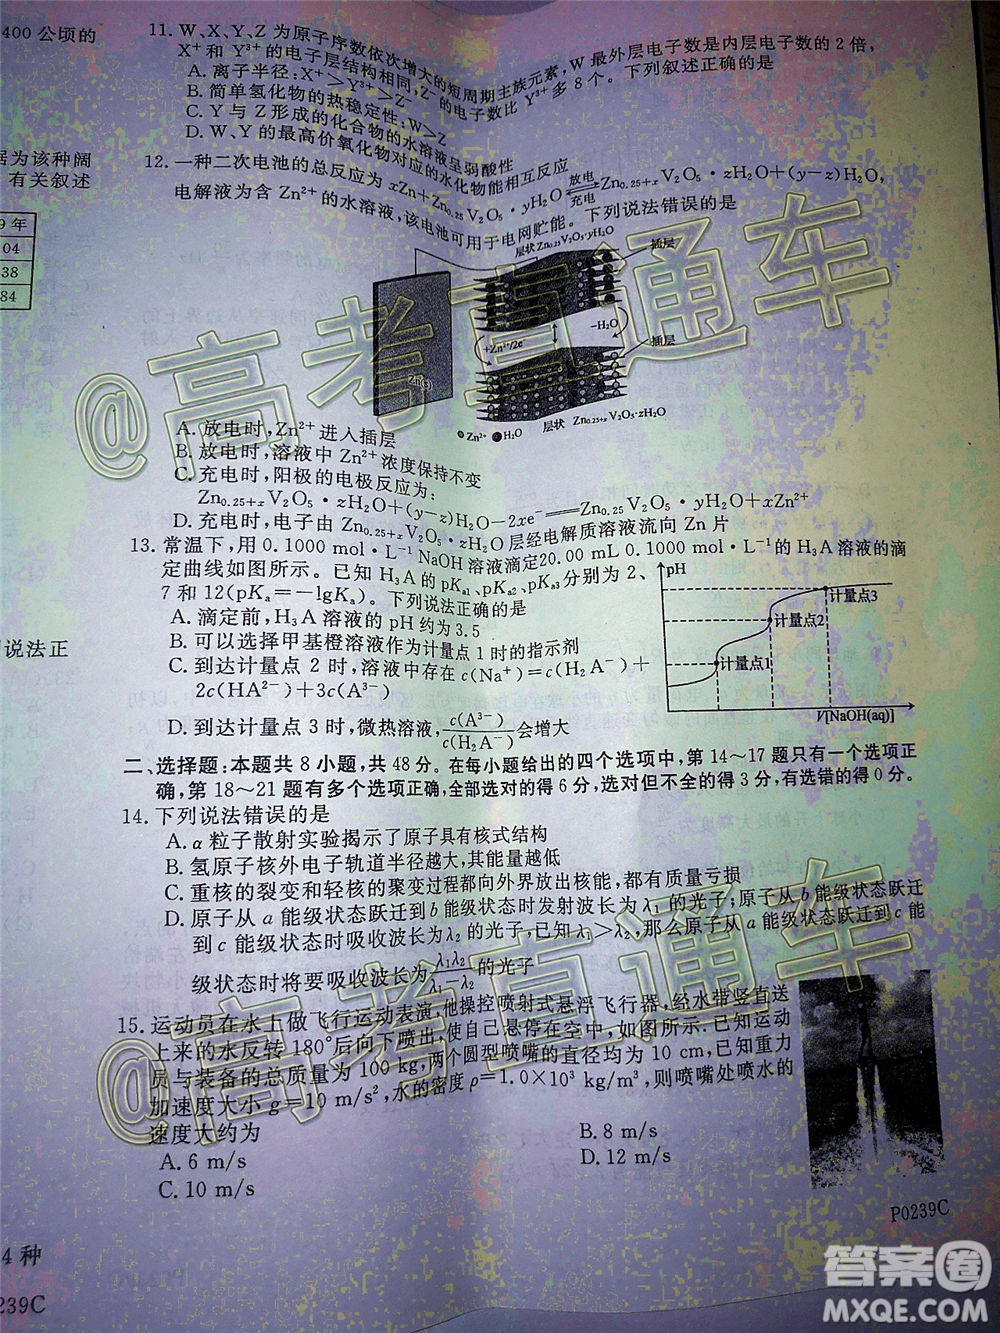 400 公顷的
据为该种阔
有关叙述
9 年
04
38
84
说法正
4 种
239C
11. W、X、Y、Z 为原子序数依次增大的短周期主族元素，W 最外层电子数是内层电子数的 2 倍，
X⁺ 和 Y³⁺ 的电子层结构相同，Z⁻ 的电子数比 Y³⁺ 多 8 个。下列叙述正确的是
A. 离子半径：X⁺＞Y³⁺＞Z⁻
B. 简单氢化物的热稳定性：W＞Z
C. Y 与 Z 形成的化合物的水溶液呈弱酸性
D. W、Y 的最高价氧化物对应的水化物能相互反应
12. 一种二次电池的总反应为 xZn+Zn₀.₂₅V₂O₅·yH₂O ⇌(放电/充电) Zn₀.₂₅₊ₓV₂O₅·zH₂O+(y−z)H₂O，
电解液为含 Zn²⁺ 的水溶液，该电池可用于电网贮能。下列说法错误的是
层状 Zn₀.₂₅V₂O₅·yH₂O
插层
−H₂O
+Zn²⁺/2e⁻
插层
Zn(s)
Zn²⁺ H₂O 层状 Zn₀.₂₅₊ₓV₂O₅·zH₂O
A. 放电时，Zn²⁺ 进入插层
B. 放电时，溶液中 Zn²⁺ 浓度保持不变
C. 充电时，阳极的电极反应为：
Zn₀.₂₅₊ₓV₂O₅·zH₂O+(y−z)H₂O−2xe⁻══Zn₀.₂₅V₂O₅·yH₂O+xZn²⁺
D. 充电时，电子由 Zn₀.₂₅₊ₓV₂O₅·zH₂O 层经电解质溶液流向 Zn 片
13. 常温下，用 0.1000 mol·L⁻¹ NaOH 溶液滴定20.00 mL 0.1000 mol·L⁻¹ 的 H₃A 溶液的滴
定曲线如图所示。已知 H₃A 的 pKa1、pKa2、pKa3分别为 2、
7 和 12(pKa=−lgKa)。下列说法正确的是
A. 滴定前，H₃A 溶液的 pH 约为 3.5
B. 可以选择甲基橙溶液作为计量点 1 时的指示剂
C. 到达计量点 2 时，溶液中存在 c(Na⁺)=c(H₂A⁻)+
2c(HA²⁻)+3c(A³⁻)
D. 到达计量点 3 时，微热溶液，c(A³⁻)/c(H₂A⁻)会增大
pH
计量点3
计量点2
计量点1
V[NaOH(aq)]
二、选择题：本题共 8 小题，共 48 分。在每小题给出的四个选项中，第 14～17 题只有一个选项正
确，第 18～21 题有多个选项正确，全部选对的得 6 分，选对但不全的得 3 分，有选错的得 0 分。
14. 下列说法错误的是
A. α 粒子散射实验揭示了原子具有核式结构
B. 氢原子核外电子轨道半径越大，其能量越高
C. 重核的裂变和轻核的聚变过程都向外界放出核能，都有质量亏损
D. 原子从 a 能级状态跃迁到 b 能级状态时发射波长为 λ₁ 的光子；原子从 b 能级状态跃迁
到 c 能级状态时吸收波长为 λ₂ 的光子，已知 λ₁＞λ₂，那么原子从 a 能级状态跃迁到 c 能
级状态时将要吸收波长为λ₁λ₂/(λ₁−λ₂)的光子
15. 运动员在水上做飞行运动表演，他操控喷射式悬浮飞行器，经水带竖直送
上来的水反转 180°后向下喷出，使自己悬停在空中，如图所示. 已知运动
员与装备的总质量为 100 kg，两个圆型喷嘴的直径均为 10 cm，已知重力
加速度大小 g=10 m/s²，水的密度 ρ=1.0×10³ kg/m³，则喷嘴处喷水的
速度大约为
A. 6 m/s
B. 8 m/s
C. 10 m/s
D. 12 m/s
P0239C
@高考直通车
@高考直通车
答案圈
MXQE.COM